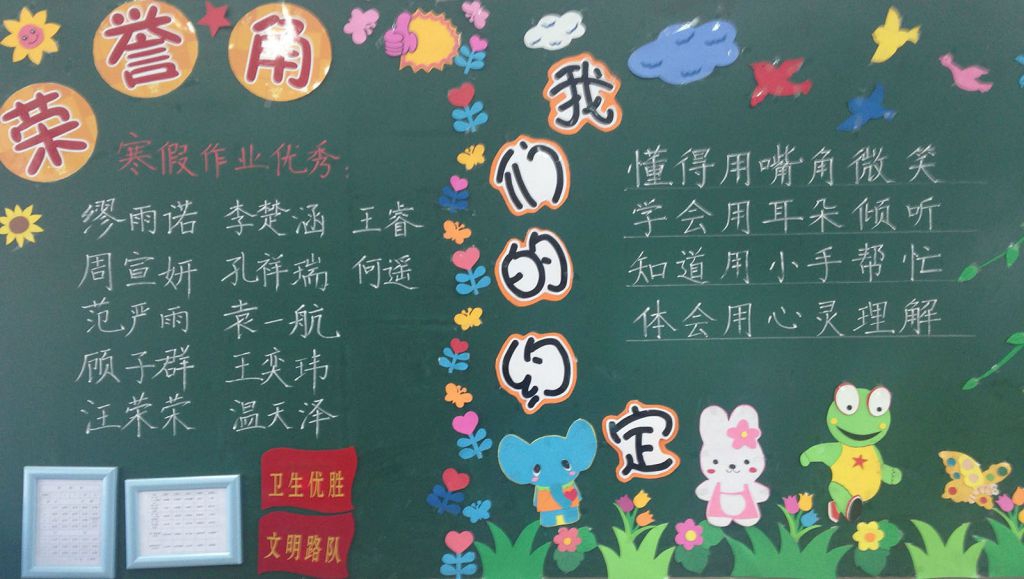 荣誉角
寒假作业优秀:
缪雨诺 李楚涵 王睿
周宣妍 孔祥瑞 何遥
范严雨 袁一航
顾子群 王奕玮
汪荣荣 温天泽
卫生优胜
文明路队
我们的约定
懂得用嘴角微笑
学会用耳朵倾听
知道用小手帮忙
体会用心灵理解